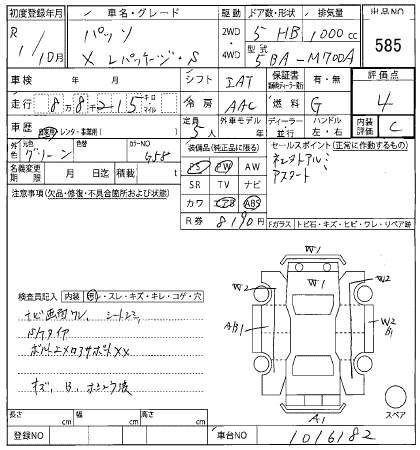 初度登録年月 車名・グレード 駆動 ドア数・形状 排気量 出品NO
R 1/10月 パッソ 2WD 4WD 5 HB 1000cc 585
X Lパッケージ・S 型式 5BA-M700A
車検 年 月 シフト IAT 保証書 有・無 評価点
走行 8万8千215 キロ マイル 冷房 AAC 燃料 G 4
車歴 自家用・レンタ・事業用( ) 定員 5人 外車モデル ディーラー 並行 ハンドル 左・右 内装評価 C
外色 元色 グリーン 色替 カラーNO G58
装備品(純正品に限る) セールスポイント(正常に作動するもの)
PS PW AW
名義変更期限 月 日迄 積載 t SR TV ナビ アスタート
注意事項(欠品・修復・不具合箇所および状態) カワ エアB ABS
R券 8190円 Fガラス トビ石・キズ・ヒビ・ワレ・リペア跡
検査員記入 内装 ・スレ・キズ・キレ・コゲ・穴
ナビ画面ワレ、シートシミ
ドケタイヤ
W1
W1
W2
W2
A,B1
W2
B1
A1
スペア
長さ cm 幅 cm 高さ cm
登録NO 車台NO 1016182